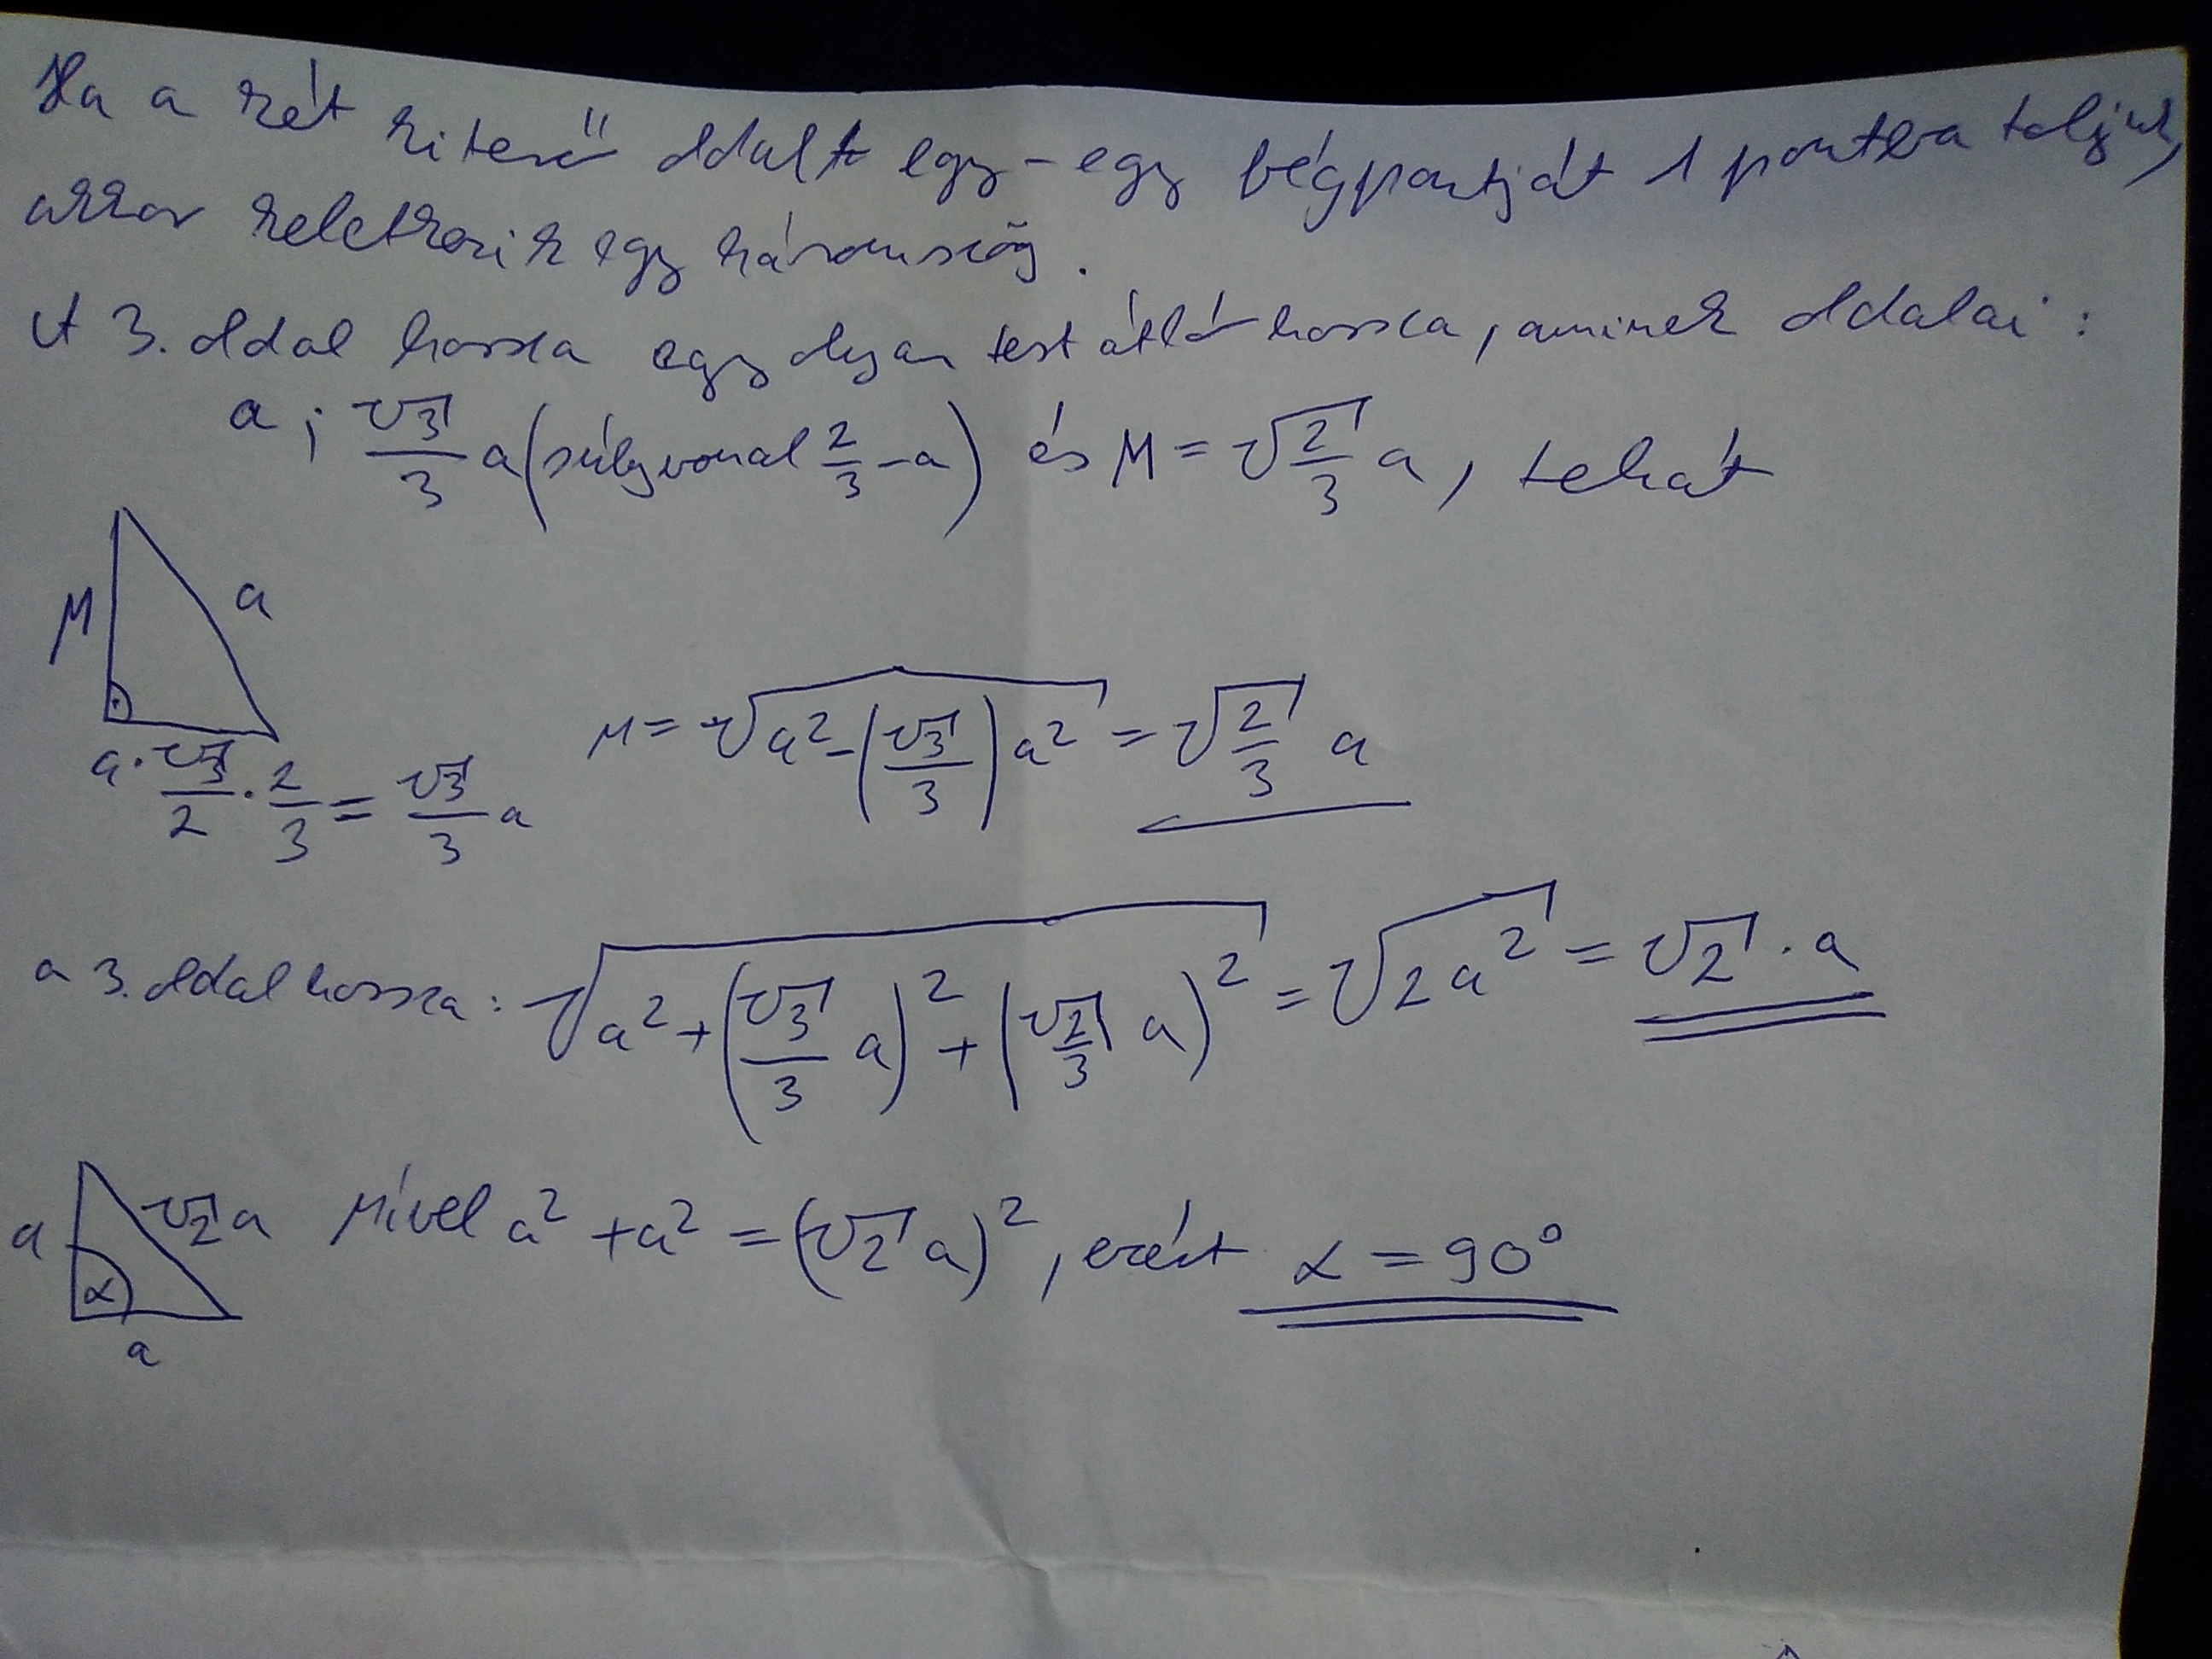 Ha a két kitérő oldalt egy-egy végpontját 1 pontba toljuk,
akkor keletkezik egy háromszög.
A 3. oldal hossza egy olyan testátló hossza, aminek oldalai:
a; √3/3 a (súlyvonal 2/3-a) és M = √(2/3) a, tehát
M
a
a·√3/2·2/3 = √3/3 a
M = √(a² - (√3/3) a²) = √(2/3) a
a 3. oldal hossza: √(a² + (√3/3 a)² + (√(2/3) a)²) = √(2a²) = √2·a
a
√2 a
α
a
Mivel a² + a² = (√2 a)², ezért α = 90°